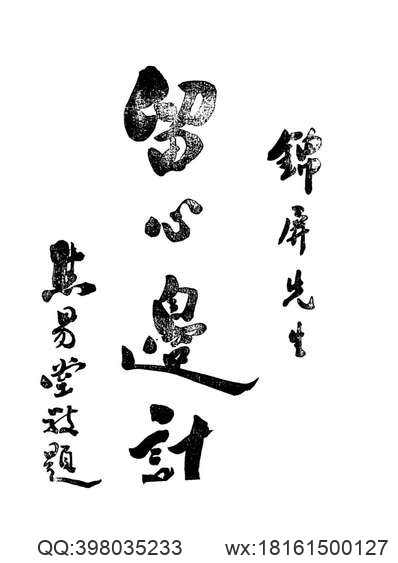 錦屏先生
留心邊計
易堂敬題
QQ:398035233 wx:18161500127